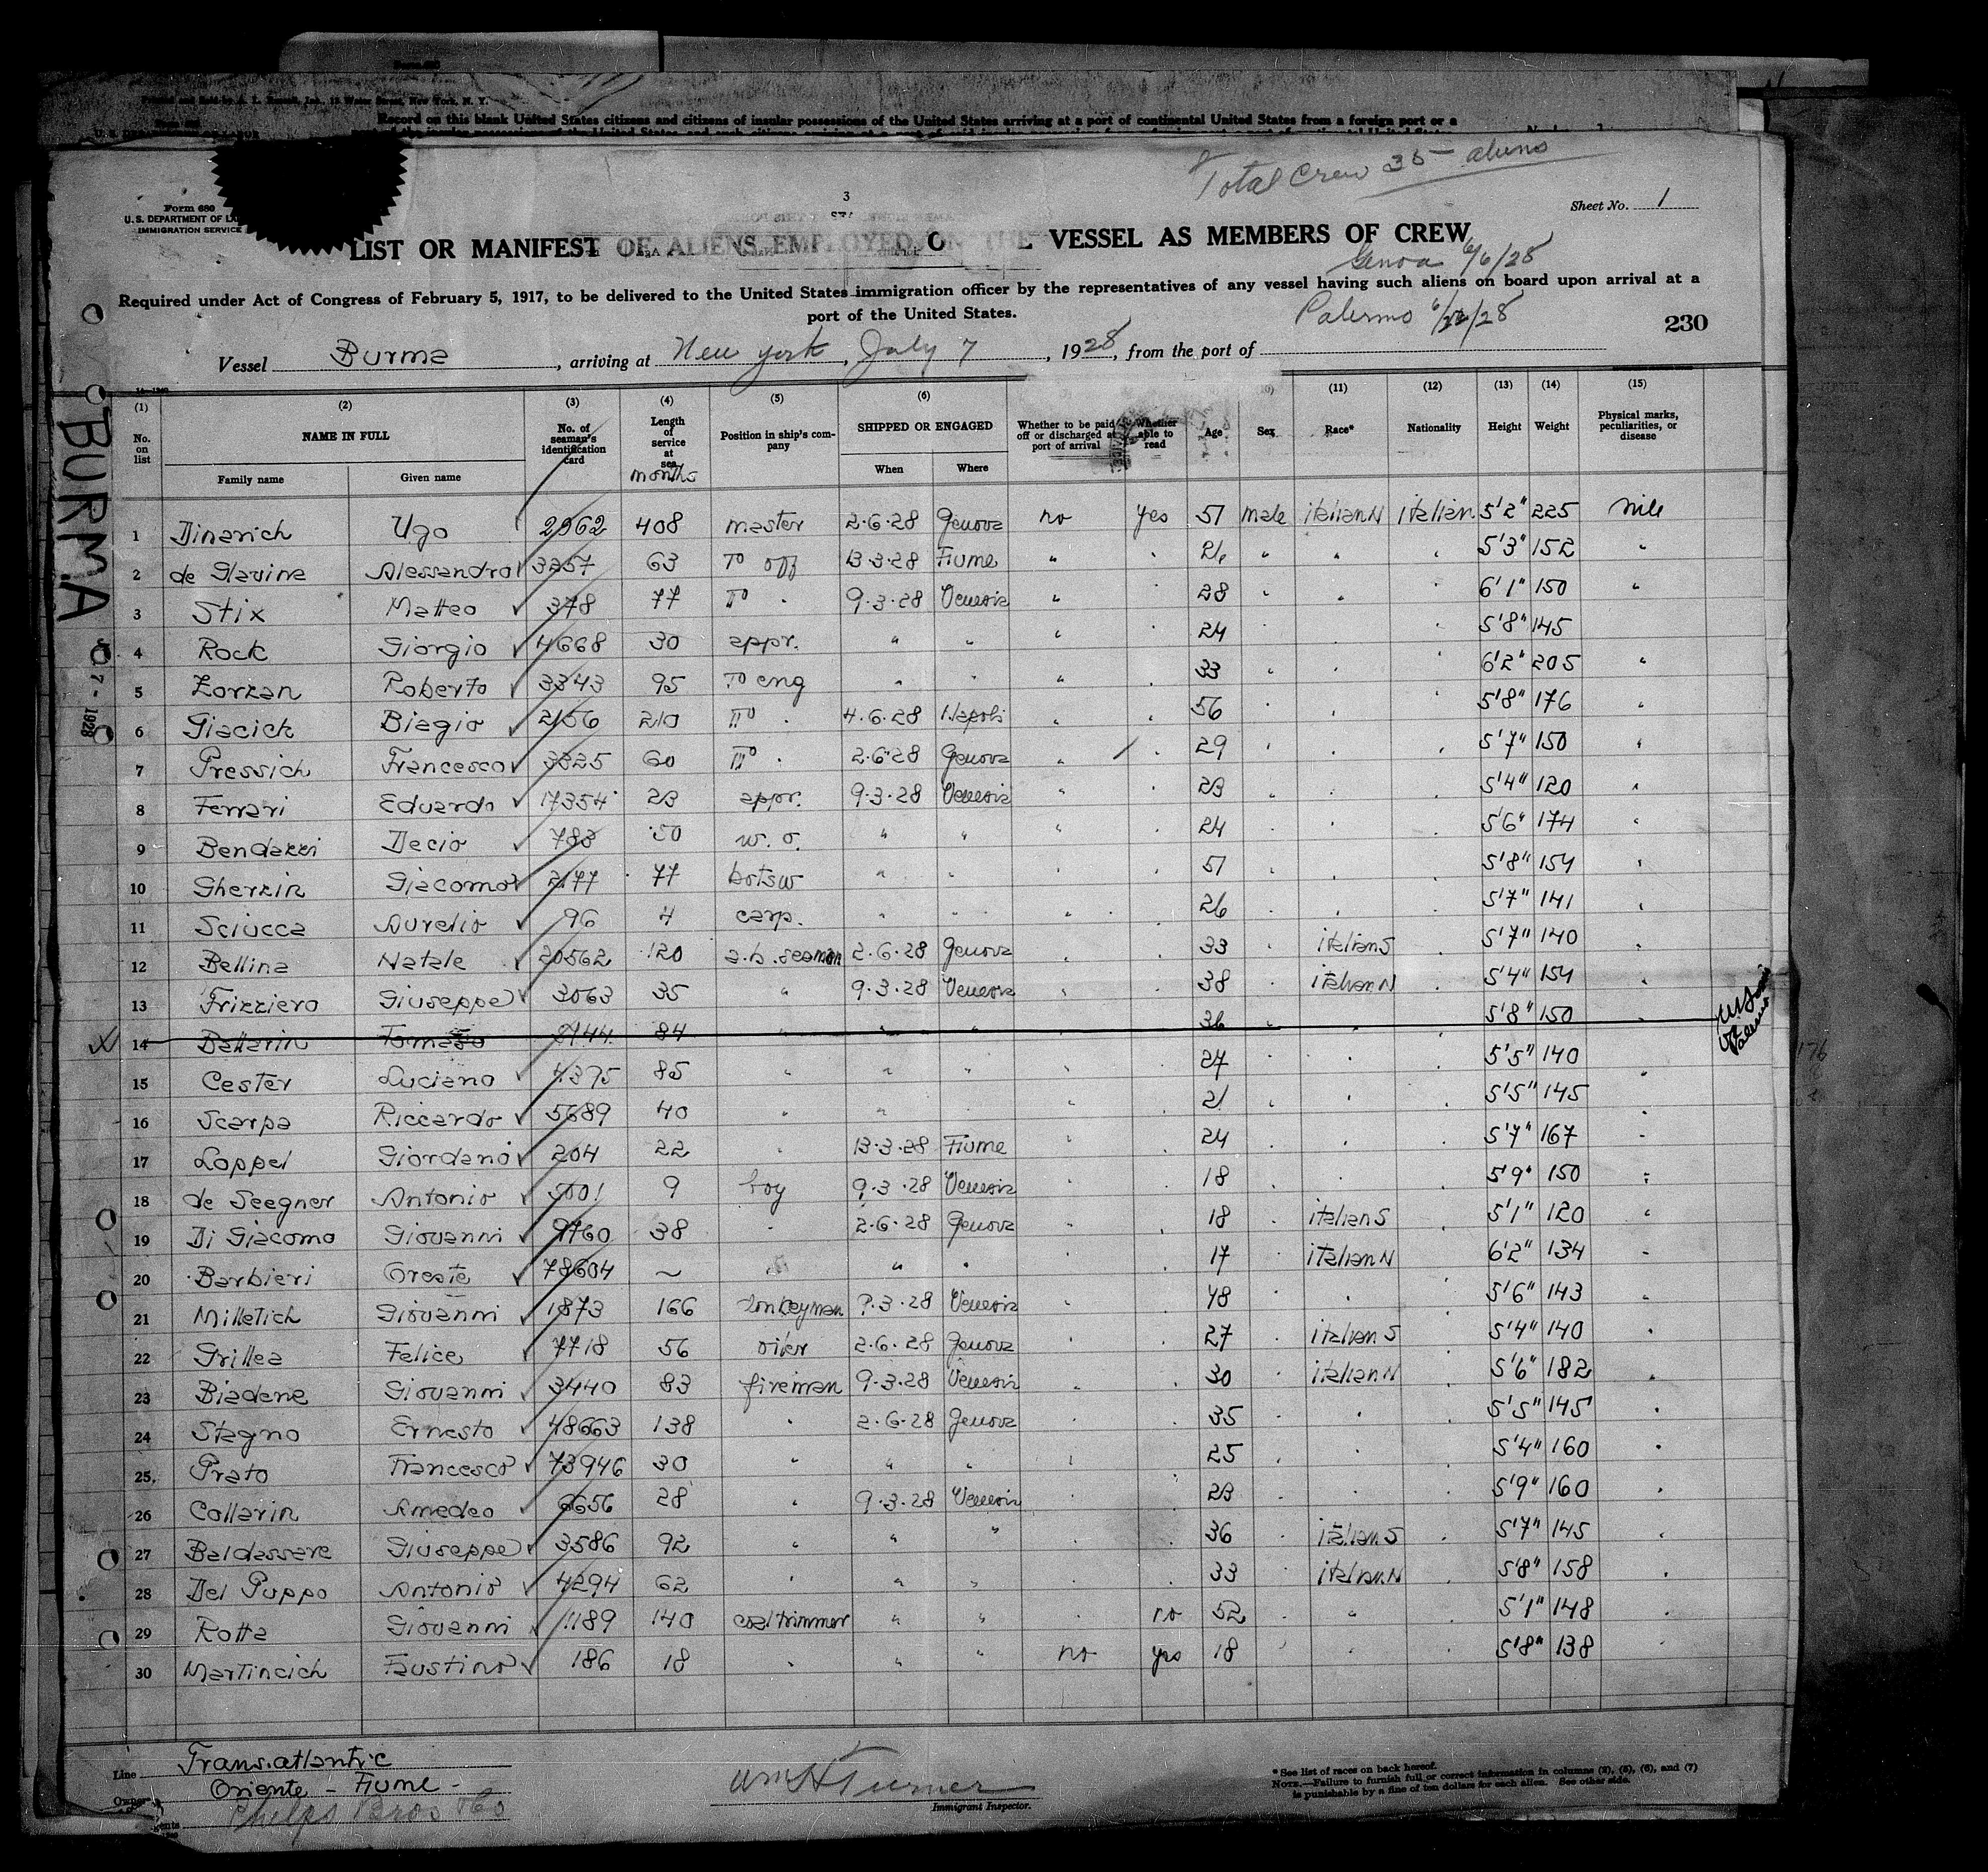 Printed and Sold by A. L. Russell, Inc., 12 Water Street, New York, N. Y.
Record on this blank United States citizens and citizens of insular possessions of the United States arriving at a port of continental United States from a foreign port or a
Total Crew 35 – aliens
Form 680
U. S. DEPARTMENT OF
IMMIGRATION SERVICE
3
Sheet No. 1
LIST OR MANIFEST OF ALIENS EMPLOYED ON THE VESSEL AS MEMBERS OF CREW
Genoa 6/6/28
Required under Act of Congress of February 5, 1917, to be delivered to the United States immigration officer by the representatives of any vessel having such aliens on board upon arrival at a
port of the United States.
Palermo 6/22/28
230
Vessel Burma, arriving at New York, July 7, 1928, from the port of
BURMA
7 - 1928
(1) (2) (3) (4) (5) (6) (10) (11) (12) (13) (14) (15)
No. on list NAME IN FULL No. of seaman's identification card Length of service at sea months Position in ship's company SHIPPED OR ENGAGED Whether to be paid off or discharged at port of arrival Whether able to read Age Sex Race* Nationality Height Weight Physical marks, peculiarities, or disease
Family name Given name When Where
1 Dinarich Ugo 2962 408 master 2.6.28 Genova no yes 51 male italian N italian 5'2" 225 nile
2 de Glavina Alessandro 3257 63 I° off 13.3.28 Fiume " 26 " " 5'3" 152 "
3 Stix Matteo 378 77 II° " 9.3.28 Venezia " 28 " " 6'1" 150 "
4 Rock Giorgio 4668 30 appr. " " " 24 5'8" 145
5 Zorzan Roberto 3343 95 I° eng " " " 33 6'2" 205 "
6 Giacich Biagio 2156 210 II° " 4.6.28 Napoli 56 5'8" 176
7 Pressich Francesco 3325 60 III° " 2.6.28 Genova 29 5'7" 150
8 Ferrari Eduardo 17354 23 appr. 9.3.28 Venezia 23 5'4" 120
9 Bendazzi Decio 783 50 w. o. " " 24 5'6" 174
10 Gherzin Giacomo 2177 77 botsw " 51 5'8" 154
11 Sciucca Aurelio 96 4 carp. " " 26 5'7" 141
12 Bellina Natale 20562 120 a.b. seaman 2.6.28 Genova 33 italian S 5'7" 140
13 Frizziero Giuseppe 3063 35 " 9.3.28 Venezia 38 italian N 5'4" 154
14 Ballarin Tomaso 8144 84 " " " 36 5'8" 150
15 Cester Luciano 4375 85 " " " 27 5'5" 140
16 Scarpa Riccardo 5689 40 " " 21 5'5" 145
17 Loppel Giordano 204 22 " 13.3.28 Fiume 24 5'7" 167
18 de Seegner Antonio 5001 9 boy 9.3.28 Venezia 18 5'9" 150
19 Di Giacomo Giovanni 9760 38 " 2.6.28 Genova 18 italian S 5'1" 120
20 Barbieri Oreste 78604 ~ " " " 17 italian N 6'2" 134
21 Milletich Giovanni 1873 166 donkeyman 9.3.28 Venezia 48 5'6" 143
22 Grillea Felice 7718 56 oiler 2.6.28 Genova 27 italian S 5'4" 140
23 Biadene Giovanni 3440 83 fireman 9.3.28 Venezia 30 italian N 5'6" 182
24 Stagno Ernesto 48663 138 " 2.6.28 Genova 35 " 5'5" 145
25. Prato Francesco 73946 30 " " " 25 5'4" 160
26 Collarin Amedeo 6656 28 " 9.3.28 Venezia 23 5'9" 160
27 Baldassare Giuseppe 3586 92 " " " 36 italian S 5'7" 145
28 Del Puppo Antonio 4294 62 " " " 33 italian N 5'8" 158
29 Rotta Giovanni 1189 140 coal trimmer " " no 52 " 5'1" 148
30 Martincich Faustino 186 18 " " " no yes 18 " 5'8" 138
Line Transatlantic
Owner Oriente – Fiume –
Phelps Bros & Co
Wm H Turner
Immigrant Inspector.
* See list of races on back hereof.
NOTE.—Failure to furnish full or correct information in columns (2), (5), (6), and (7)
is punishable by a fine of ten dollars for each alien. See other side.